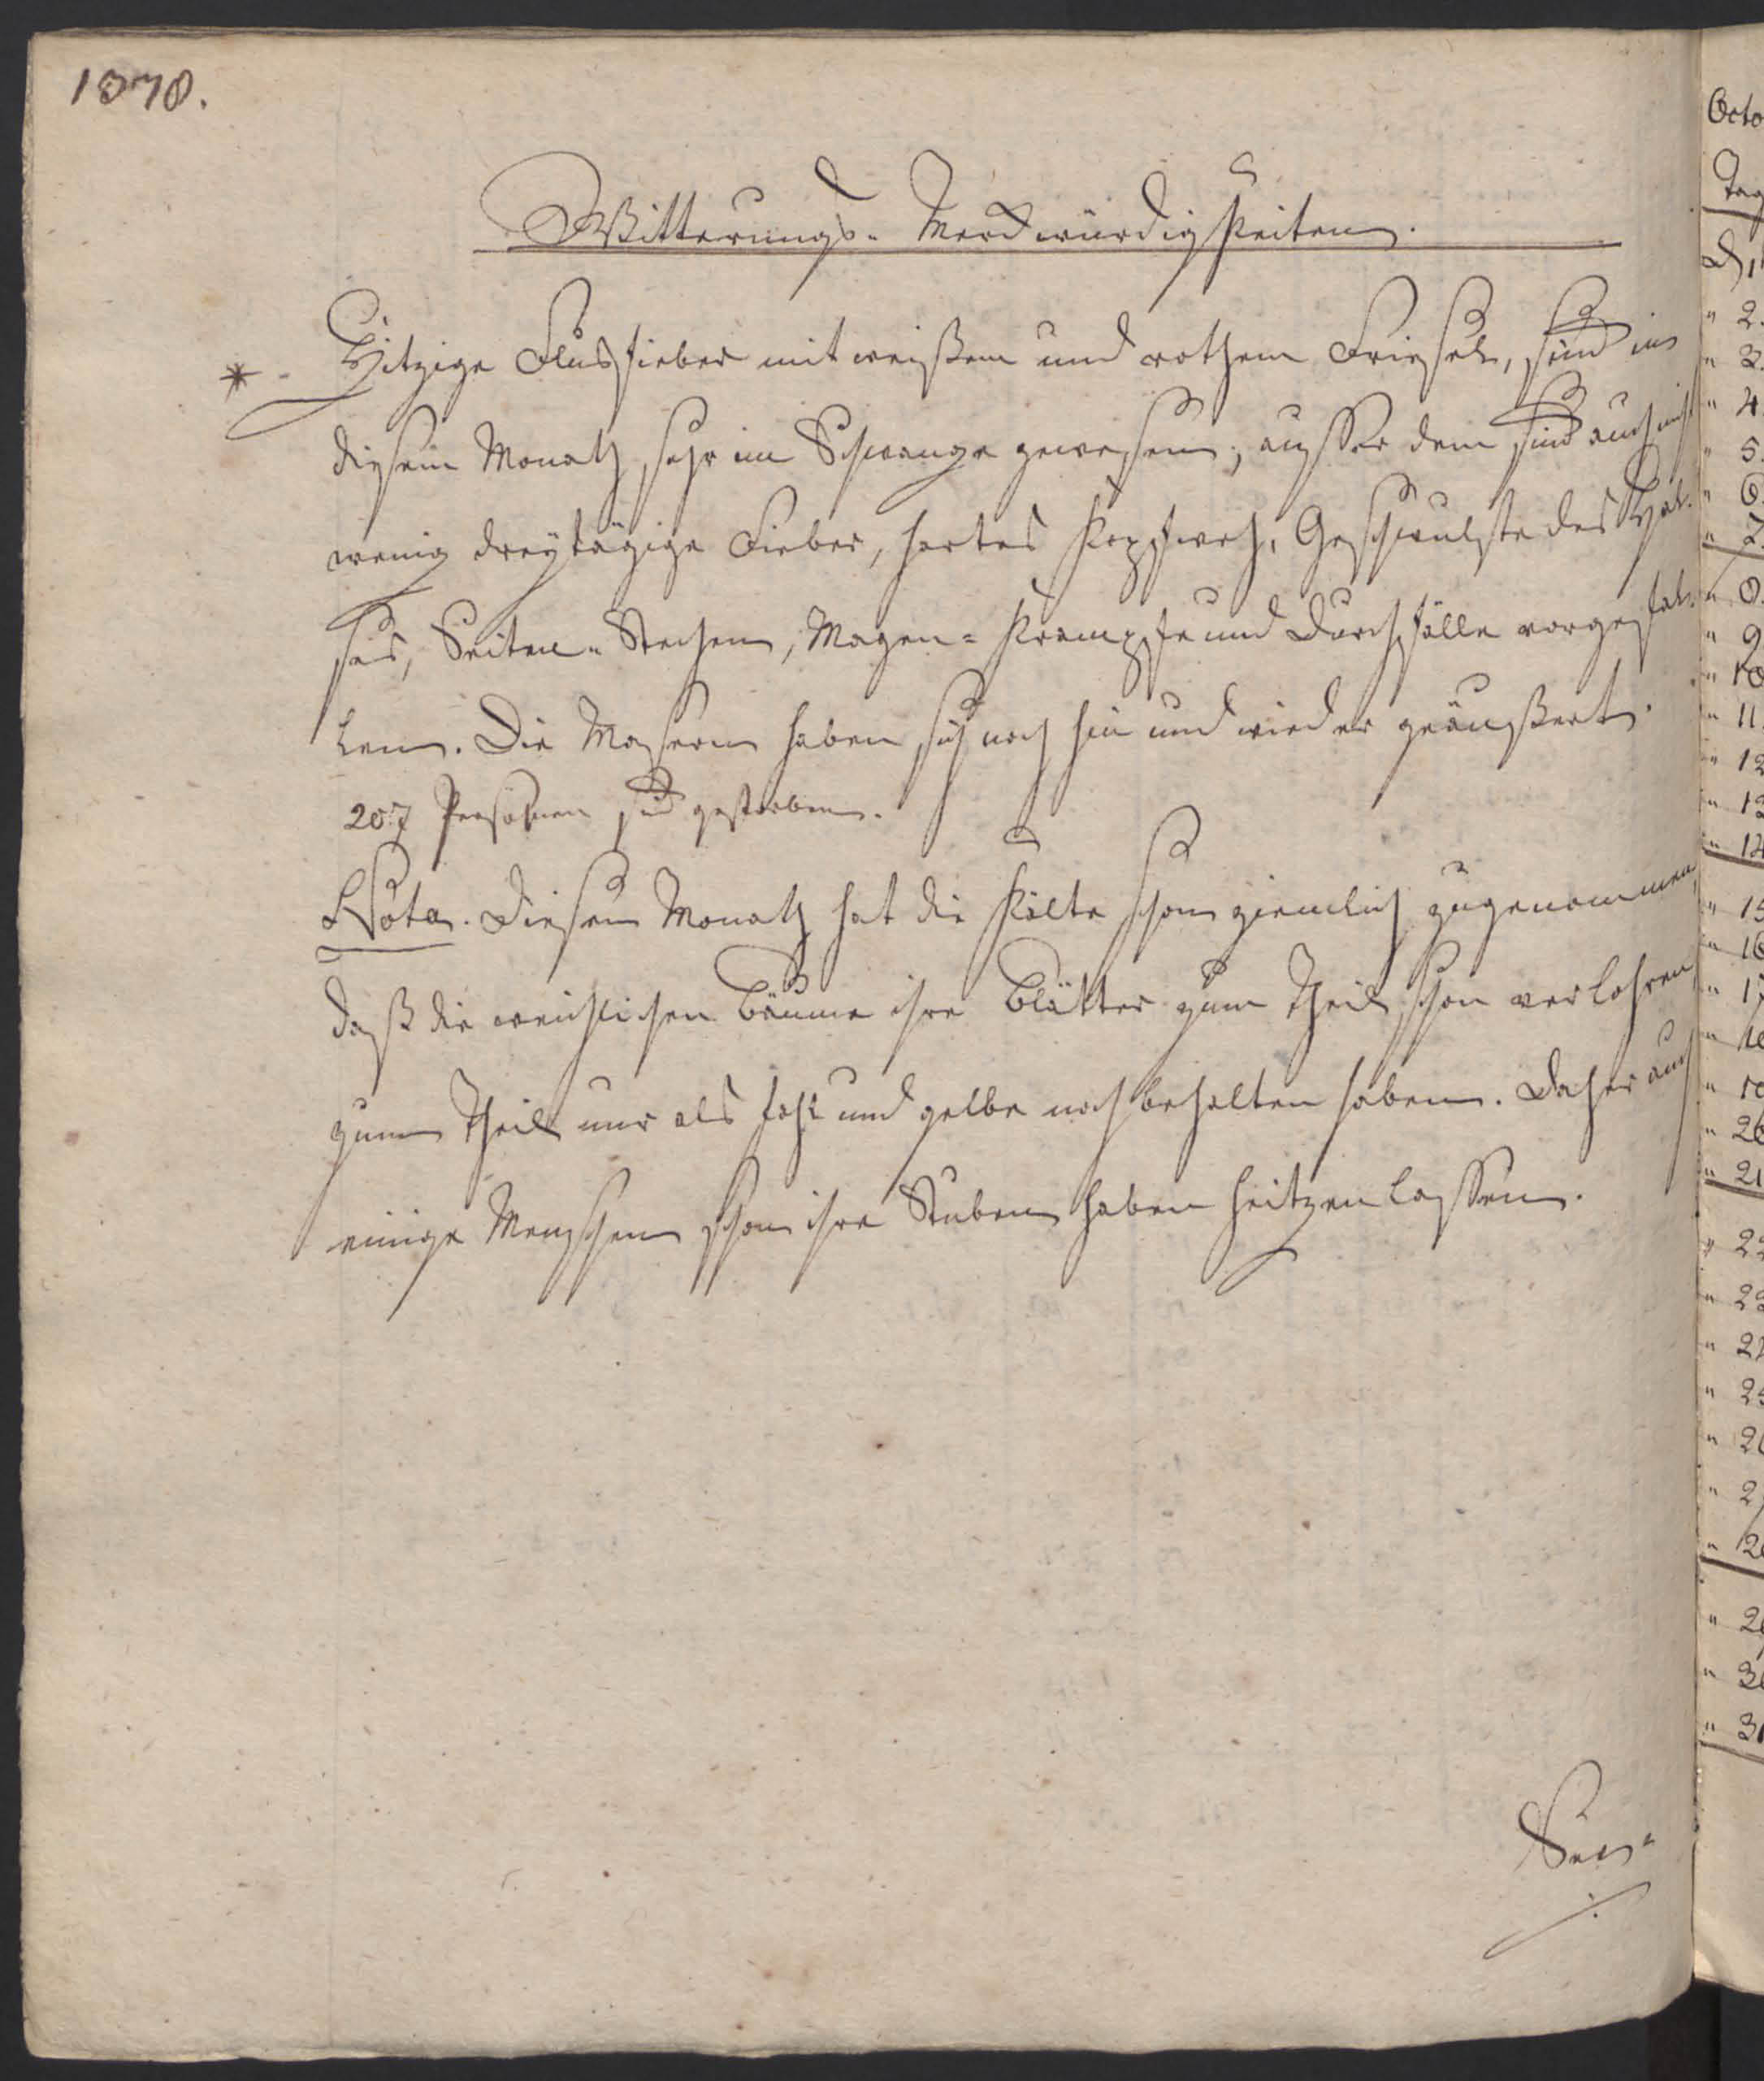 1878.
Witterungs- Merckwürdigkeiten.
* - Hitzige Flussfieber mit weißem und rothem Friesel, sind in
diesem Monath sehr im Schwange gewesen; ausser dem sind auch nicht
wenig dreytägige Fieber, hartes Kopfweh, Geschwulste des Hal-
ses, Seiten-Stechen, Magen-Krampfe und Durchfälle vorgefal-
len. Die Masern haben sich noch hin und wieder geäußert.
207 Persohnen sind gestorben.
Nota. Diesen Monath hat die Kälte schon ziemlich zugenommen,
daß die weichlichen Bäume ihre Blätter zum Theil schon verlohren,
zum Theil nur als fahl und gelbe noch behalten haben. Daher auch
einige Menschen schon ihre Stuben haben heitzen lassen.
Octo
Tag
1
" 2.
" 3.
" 4
" 5.
" 6.
" 7.
" 8.
" 9
" 10
" 11.
" 12
" 13
" 14
" 15
" 16
" 17
" 18
" 19
" 20
" 21
" 22
" 23
" 24
" 25
" 26
" 27
" 28
" 29
" 30
" 31